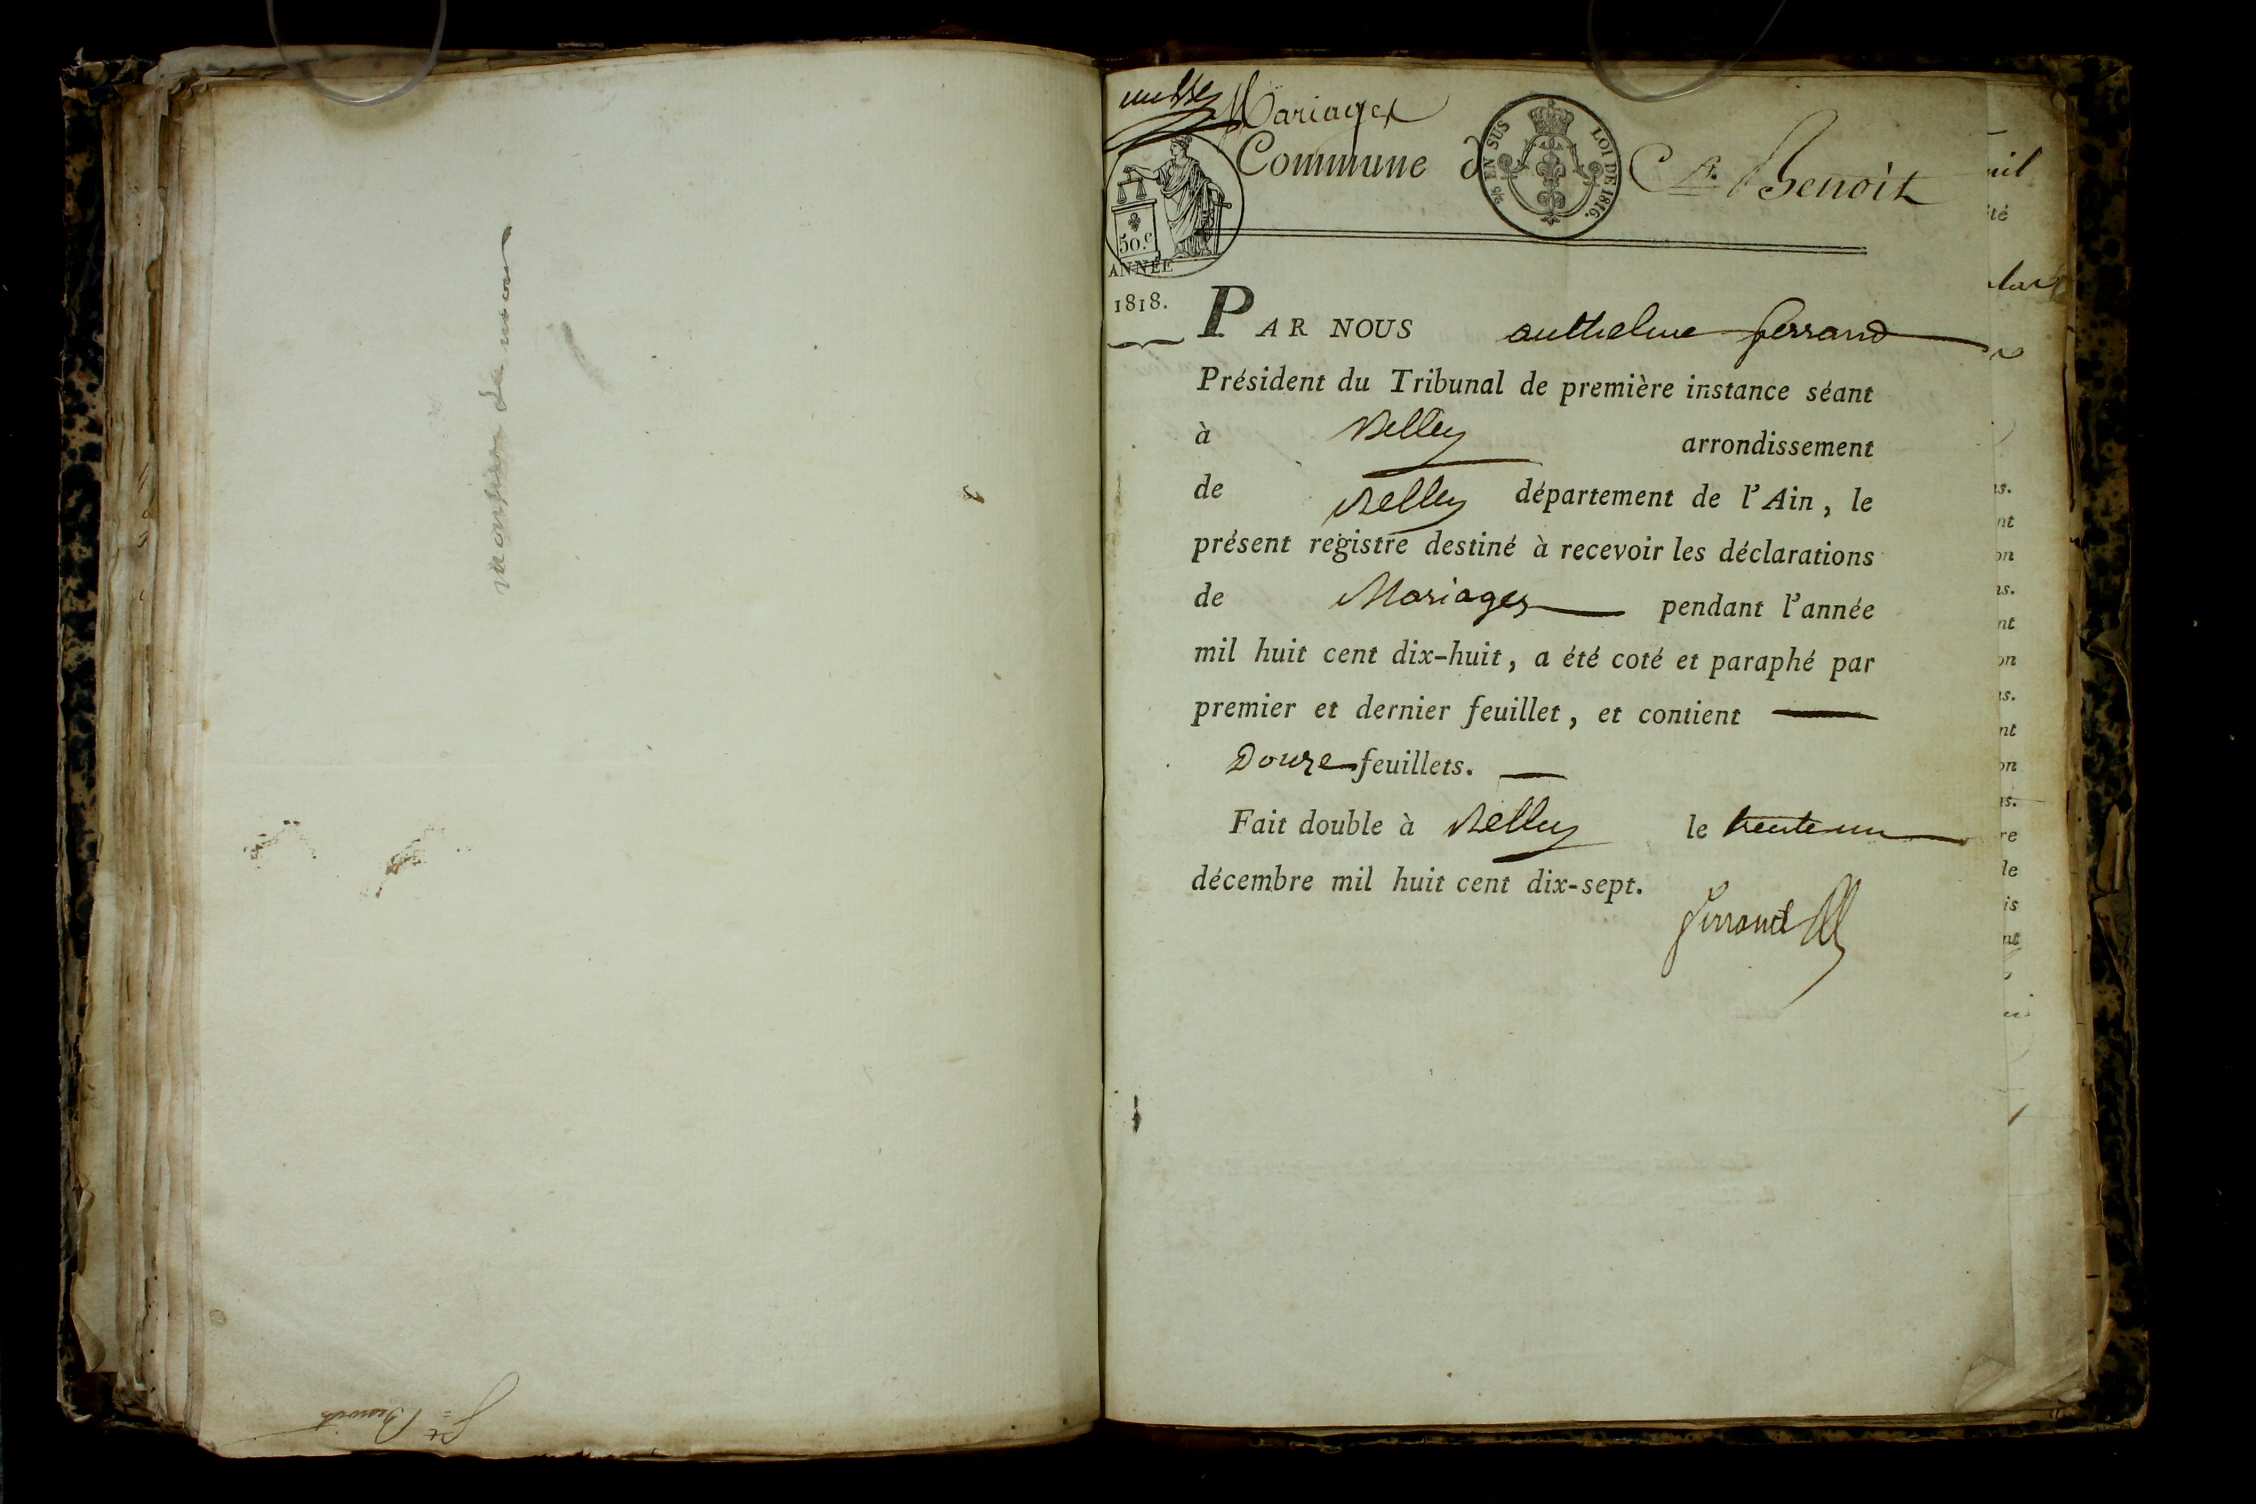 St Benoit
Mariages
Commune d
St. Benoit
2/5 EN SUS
LOI DE 1816.
50.c
ANNÉE
1818.
PAR NOUS anthelme ferrand
Président du Tribunal de première instance séant
à Belley arrondissement
de Belley département de l'Ain, le
présent registre destiné à recevoir les déclarations
de Mariages pendant l'année
mil huit cent dix-huit, a été coté et paraphé par
premier et dernier feuillet, et contient
Douze feuillets.
Fait double à Belley le trente un
décembre mil huit cent dix-sept.
ferrand